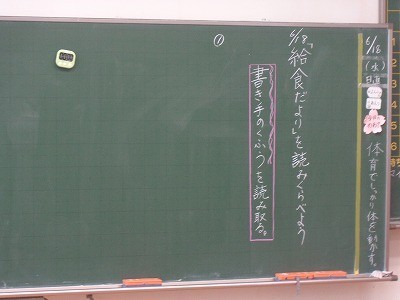 6/18
(水)
日直
体育でしっかり体を動かす。
6/18「給食だより」を読みくらべよう
①
書き手のくふうを読み取る。